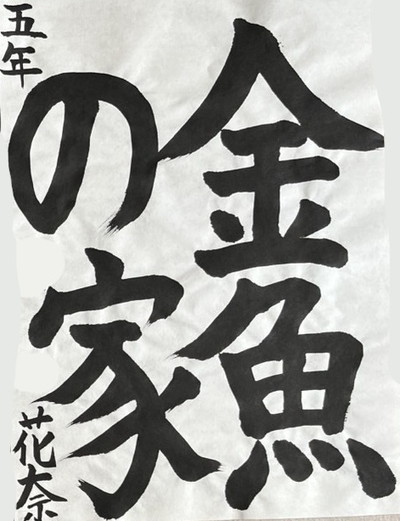 金魚
の家
五年
花奈